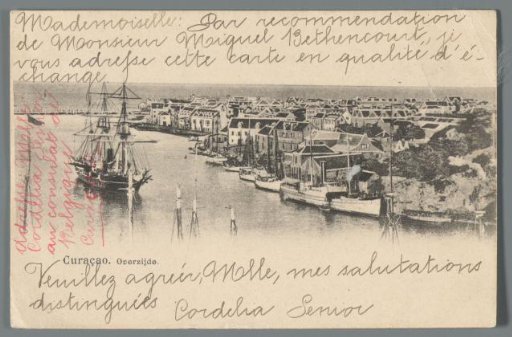 Mademoiselle: Par recommendation
de Monsieur Miguel Bethencourt, je
vous adresse cette carte en qualité d'é-
change
Cordelia Senior
au consulat de
Belgique
Curaçao. Overzijde.
Veuillez agréér, Mlle, mes salutations
distinguées
Cordelia Senior